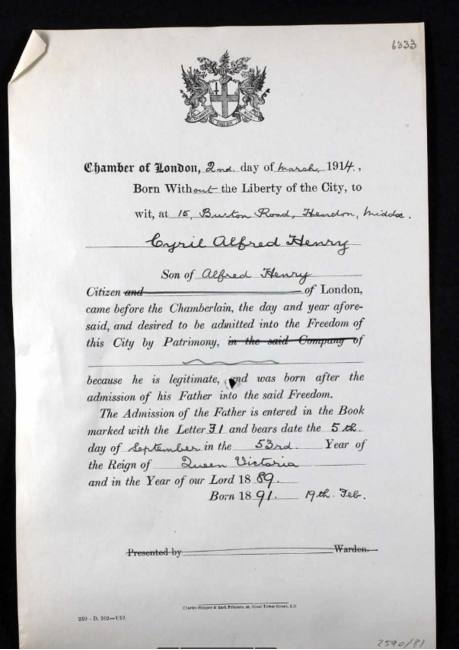 6333
Chamber of London, 2nd day of March, 1914.,
Born Without the Liberty of the City, to
wit, at 15, Burton Road, Hendon, Middx.
Cyril Alfred Henry
Son of Alfred Henry
Citizen and of London,
came before the Chamberlain, the day and year afore-
said, and desired to be admitted into the Freedom of
this City by Patrimony, in the said Company of
because he is legitimate, and was born after the
admission of his Father into the said Freedom.
The Admission of the Father is entered in the Book
marked with the Letter 31 and bears date the 5th
day of September in the 53rd Year of
the Reign of Queen Victoria
and in the Year of our Lord 1889.
Born 1891. 19th Feb.
Presented by Warden.
Printers, Great Tower Street, E.C
2590/81